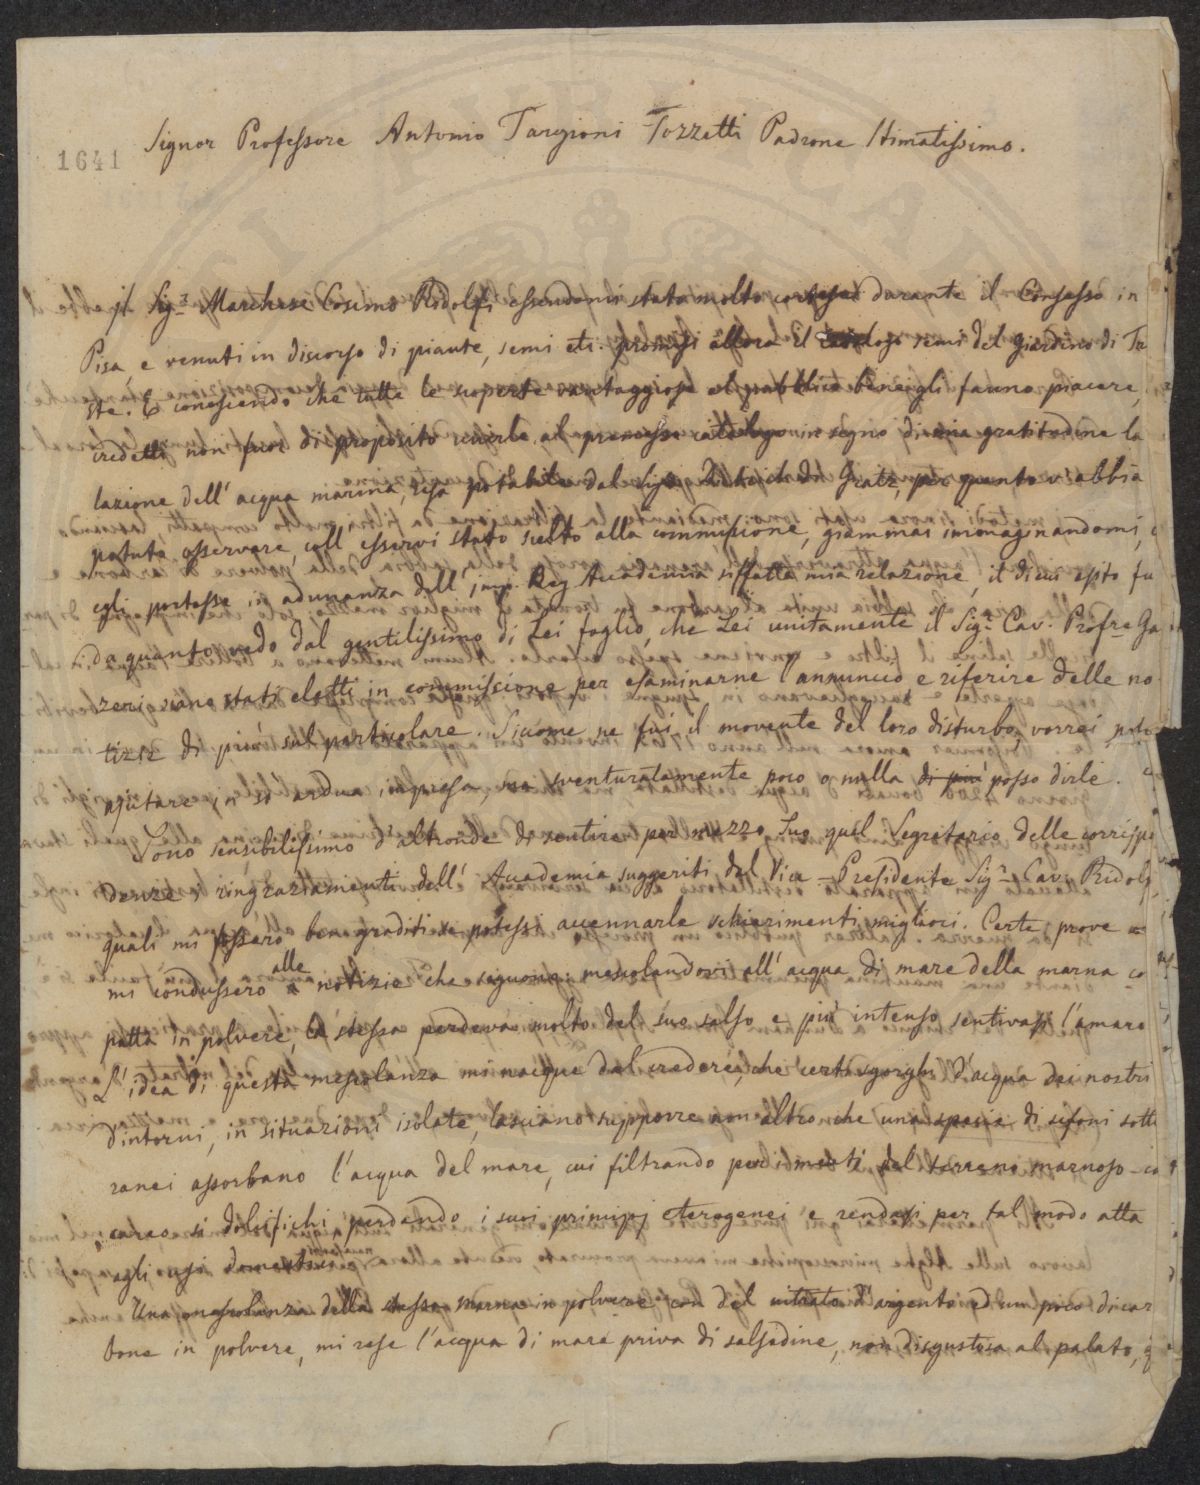 1641
Signor Professore Antonio Targioni Tozzetti Padrone Stimatissimo.
Il Sig.r Marchese Cosimo Ridolfi essendomi stato molto cortese durante il Consesso in
Pisa e venuti in discorso di piante, semi etc. promisi allora il catalogo semi del giardino di Tri
ste. E conoscendo che tutte le scoperte vantaggiose al pubblico bene gli fanno piacere,
credetti non fuor di proposito unirle al promesso catalogo in segno di mia gratitudine la
lazione dell' acqua marina, resa potabile dal Sig.r di Gratz, per quanto v' abbia
potuto osservare, coll' esservi stato scelto alla commissione, giammai immaginandomi, c
egli portasse in adunanza dell' imp. Reg Accademia siffatta mia relazione, il di cui esito fu
da quanto vedo dal gentilissimo di Lei foglio, che Lei unitamente il Sig.r Cav. Prof.re Ga
zeri siano stati eletti in commissione per esaminarne l' annuncio e riferire delle no
tizie di più sul particolare. Siccome ne fui il movente del loro disturbo, vorrei poto
ajutare in sì ardua impresa, ma sventuratamente poco o nulla di più posso dirle.
Sono sensibilissimo d'altronde di sentire per mezzo Suo qual Segretario delle corrispo
denze i ringraziamenti dell' Accademia suggeriti dal Vice-Presidente Sig.r Cav. Ridolfi,
quali mi fossero ben graditi se potessi accennarle schiarimenti migliori. Certe prove
mi condussero alle notizie che sieguono: mescolandovi all' acqua di mare della marna co-
patta in polvere, la stessa perdeva molto del suo salso e più intenso sentivasi l'amaro
L' idea di questa mescolanza mi nacque dal credere, che certi sgorghi d'acqua dei nostri
dintorni, in situazioni isolate, lasciano supporre non altro che una specie di sifoni sotte
ranei assorbano l'acqua del mare, cui filtrando per i meati del terreno marnoso-ca
careo si dolcifichi perdendo i suoi principj eterogenei e rendasi per tal modo atta
agli usi domestici
Una mescolanza della stessa marna in polvere con del nitrato d'argento ed un poco di car
bone in polvere, mi rese l'acqua di mare priva di salsedine, non disgustosa al palato, q